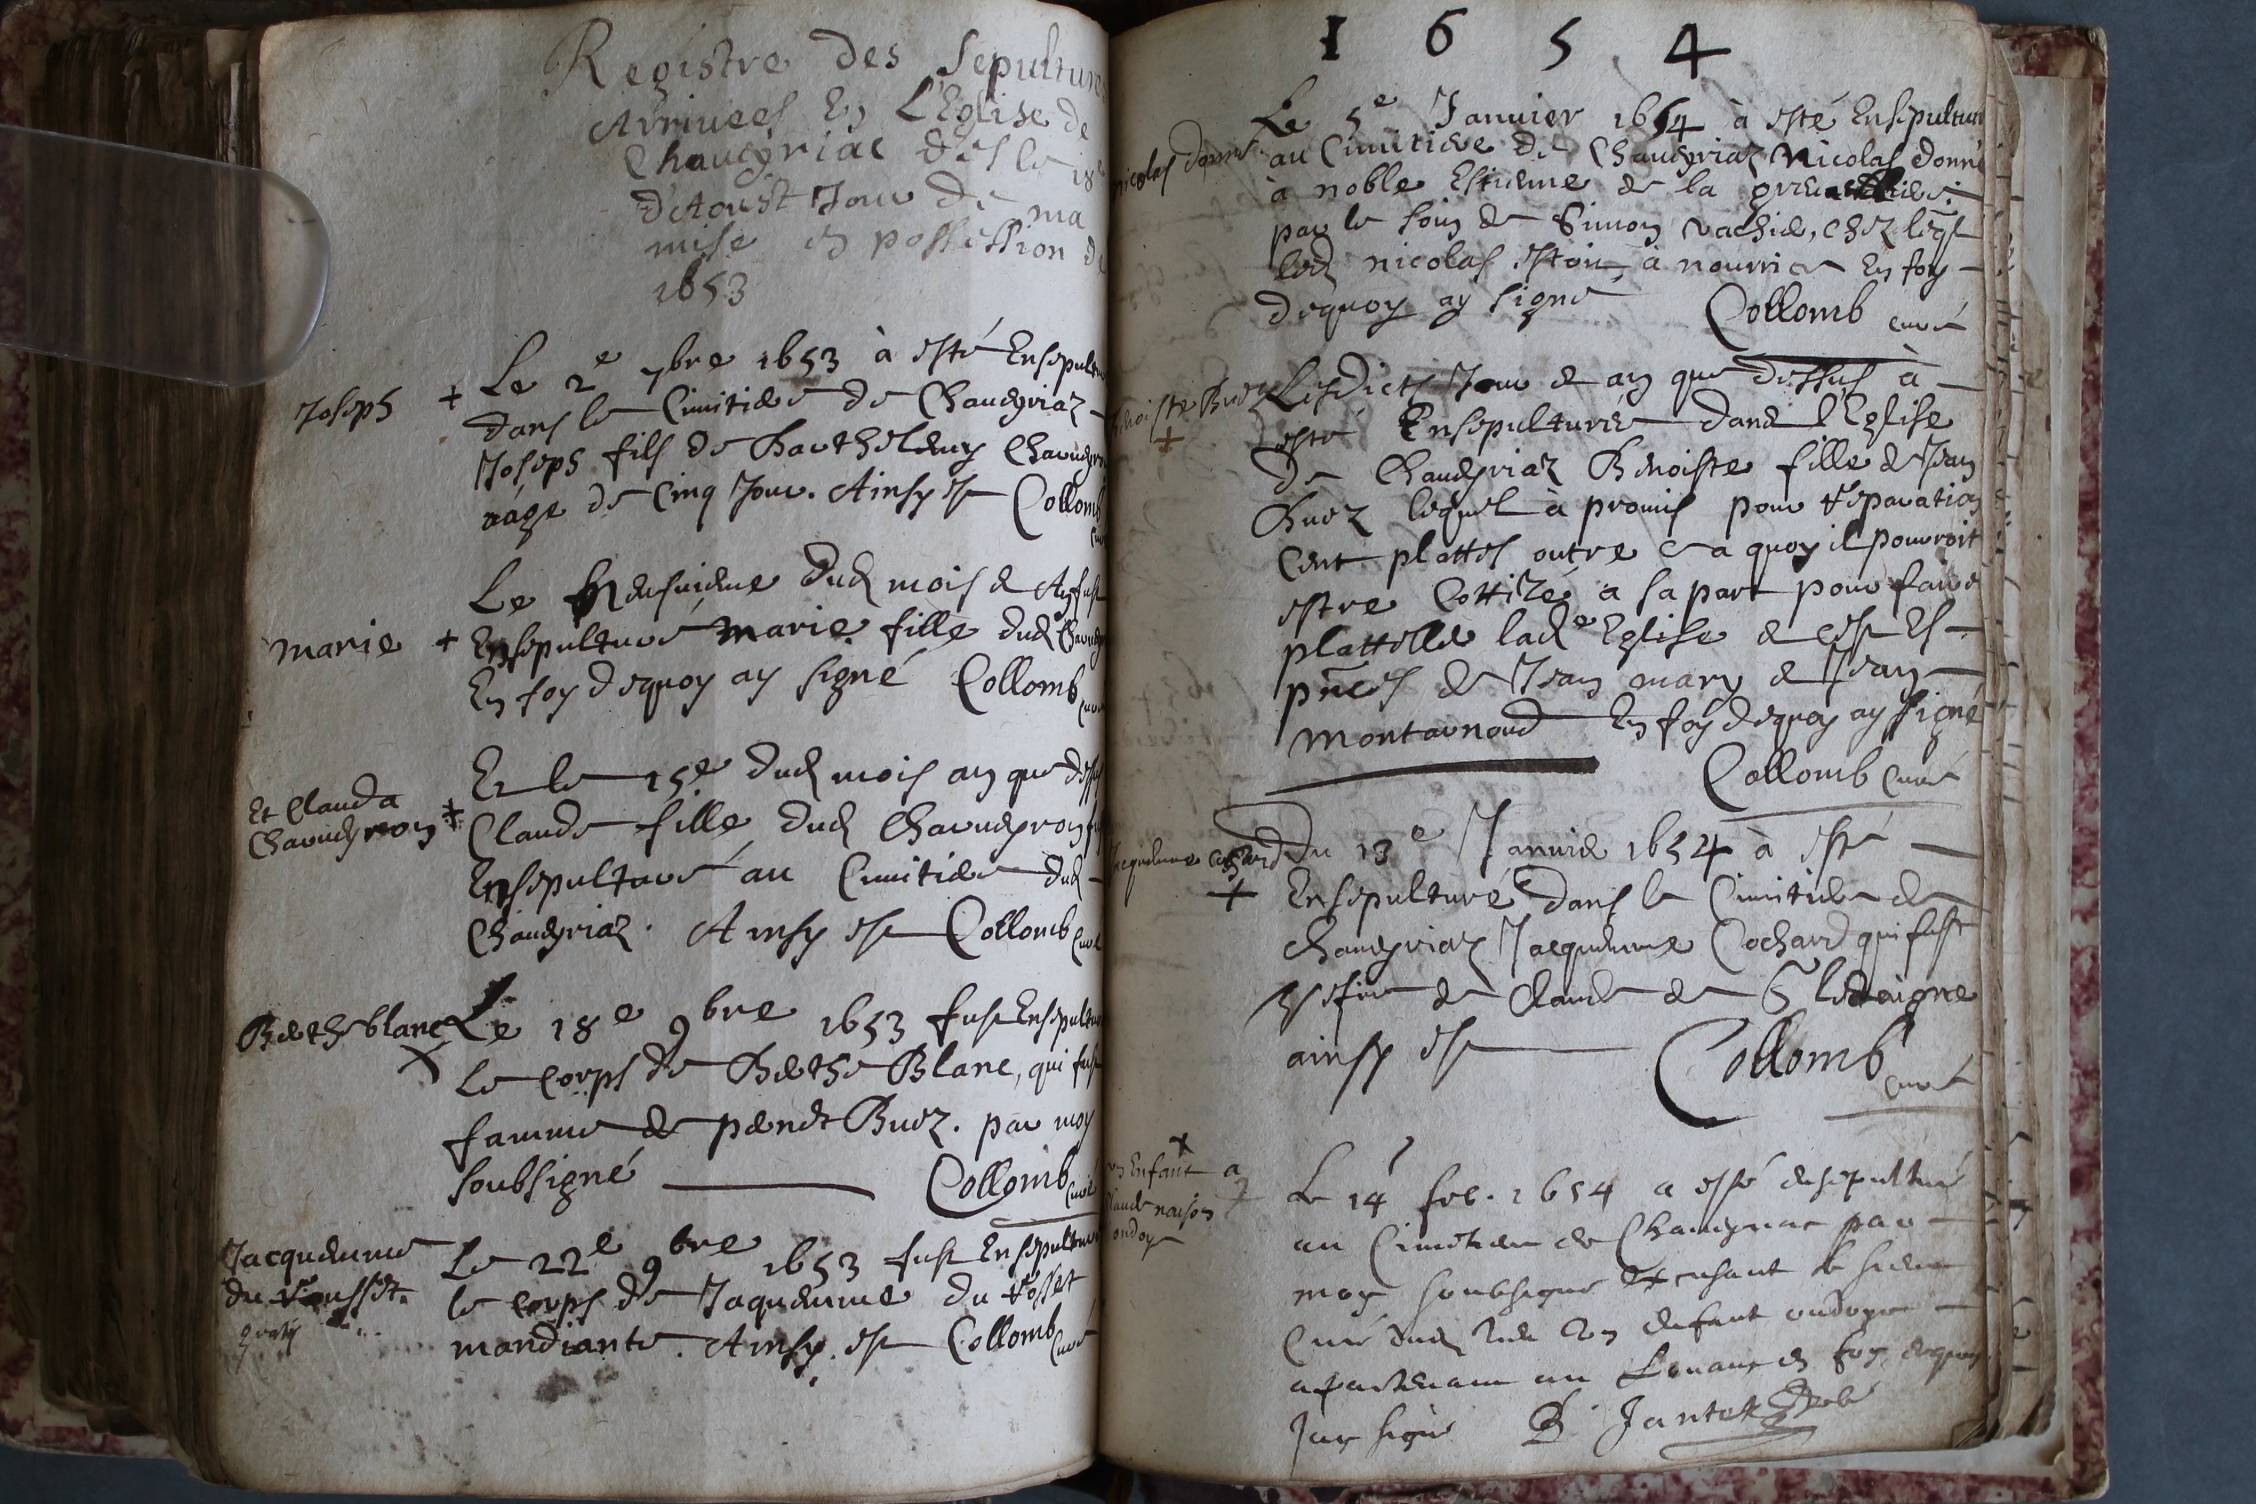 Registre des Sepultures
Arrivees En L'Eglise de
Chaveyriac dès le 18e
d'Aoust Jour de ma
mise en possession de
1653
Joseph +
Le 2e 7bre 1653 à esté Ensepultu
dans le Cimitiere de Chaveyriaz
Joseph fils de Barthelemy Chaveyro
aagé de Cinq Jour. Ainsy est Collomb
curé
Marie +
Le dud mois & An fust
Ensepulturé Marie fille dud Chavey
En foy dequoy ay signé Collomb
curé
Et Clauda
Chaveyron +
Et le 15e dud mois an que dess
Claude fille dud Chaveyron fu
Ensepulturé au Cimitiere dud
Chaveyriaz. Ainsy est Collomb curé
Berthe blanc
+
Le 18e 9bre 1653 fust Ensepultu
Le Corps de Berthe Blanc, qui fust
famme de pernet Buez. par moy
soubsigné Collomb curé
Jacquemme
du Fousset.
Le 22e 9bre 1653 fust Ensepultu
le corps de Jaquemme du Fosset
mandiante. Ainsy est Collomb curé
1654
nicolas donné
Le 5e Janvier 1654 à esté Ensepultur
au Cimitiere de Chaveyriaz Nicolas donné
à noble Estienne de la
par le soin de Simon vachier, chez leql
led nicolas estoit à nourrice En foy
dequoy ay signé Collomb curé
Benoiste Buez
+
Lesdicts Jour & an que dessus à
esté Ensepulturée dans l'Eglise
de Chaveyriaz Benoiste fille de Jean
Buez lequel à promis pour reparation
Cent plattes outre ce a quoy il pourroit
estre Cottizé a sa part pour faire
platteller lade Eglise & cest Es
pnces de Jean mary & Jean
Montarnoud En foy dequoy ay signé
Collomb curé
Jacquemme Cochard
+
Du 13e Janvier 1654 à esté
Ensepulturé dans le Cimitiere de
Chaveyriaz Jacquemme Cochard qui fust
de Claude de
ainsy est Collomb
curé
+
un Enfant a
Claude
ondoye
Le 14 feb. 1654 a esté ensepulturé
au Cimitiere de Chaveyriac par
moy soubsigné le sieur
Curé dud lieu Un enfant ondoyé
apartenant au en foy dequoy
Jay signé B Jantet